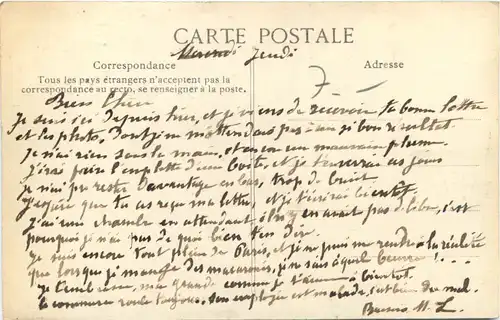 CARTE POSTALE
Mercredi Jeudi
Correspondance
Adresse
Tous les pays étrangers n'acceptent pas la
correspondance au recto, se renseigner à la poste.
7 -
Bien Chère
Je suis ici depuis hier, et je viens de recevoir ta bonne lettre
et les photo. Dont je ne m'attendais pas à un si bon résultat.
Je n'ai rien sous la main, et encore une mauvaise plume.
J'irai faire l'emplette d'une boite, et je t'enverrai
je n'ai pu rester davantage en bas, trop de bruit.
J'espère que tu as reçu ma lettre, et j'irai bientôt
J'ai une chambre en attendant n'y en avait pas de libre, c'est
pourquoi je n'ai pas de quoi bien t'en dire.
Je suis encore tout plein de Paris, et je ne puis me rendre à la réalité
que lorsque je mange des macaronis, je ne sais à quel beurre ! ...
Je t'embrasse, ma grande comme je t'aime à bientôt.
le commerce roule toujours, son employée est malade,
Buens M. L.